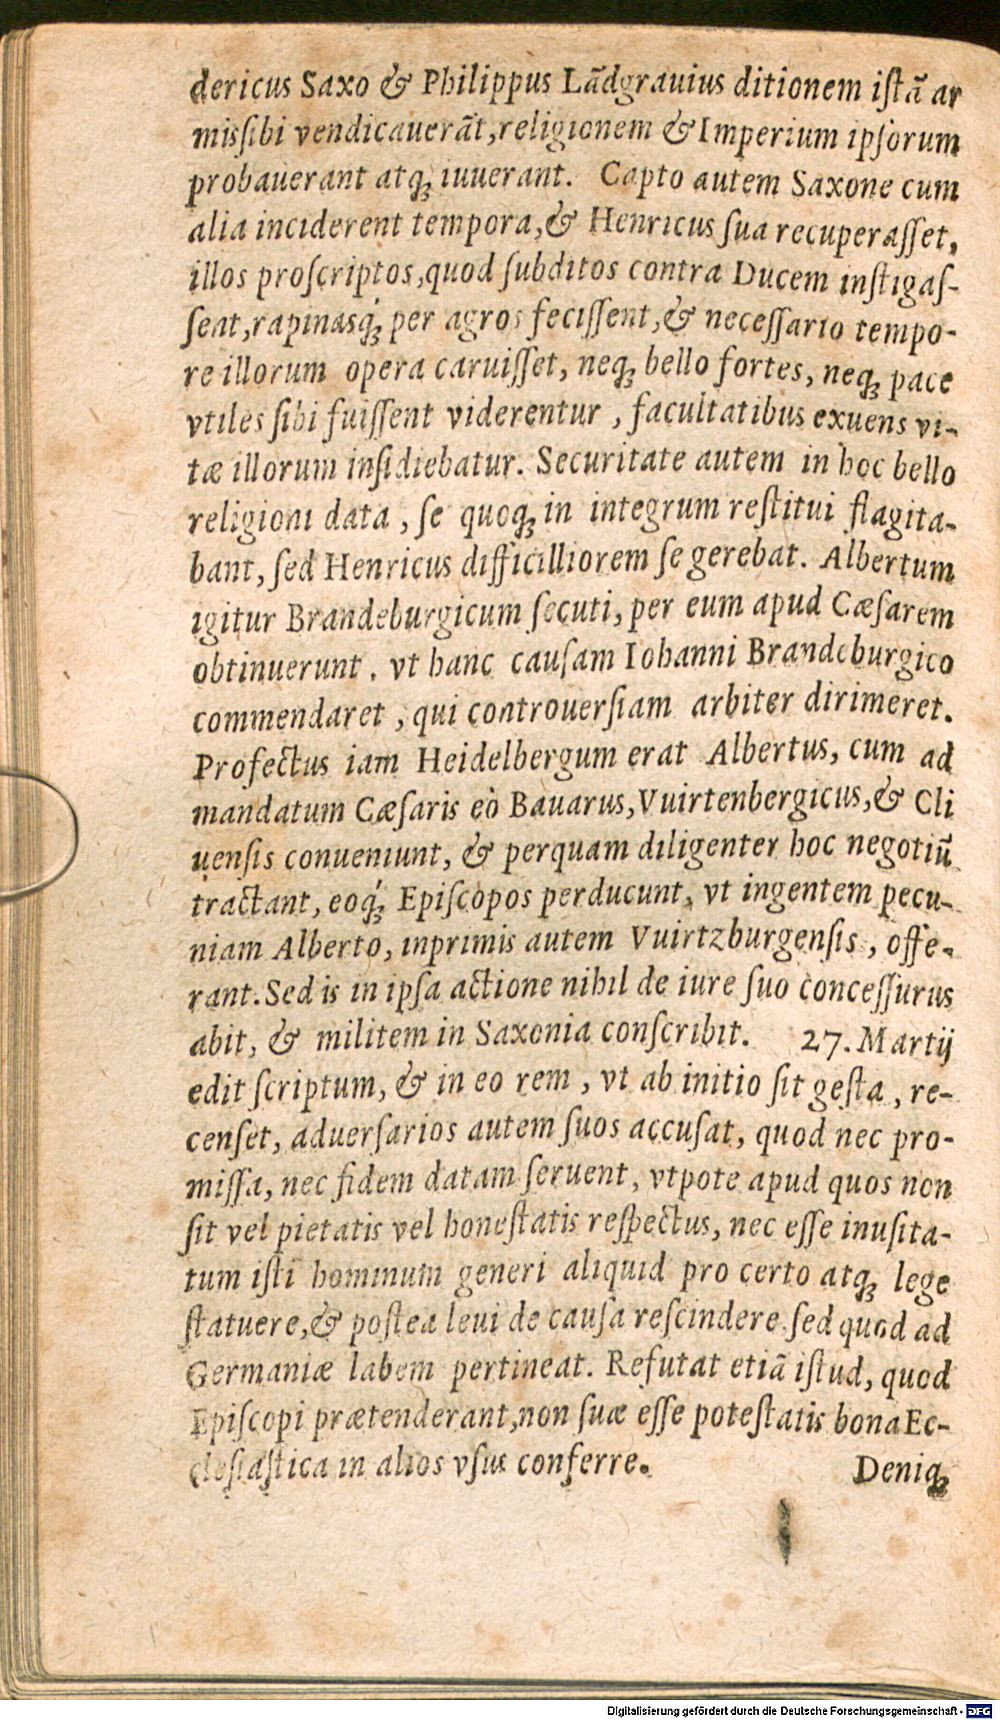 dericus Saxo & Philippus Lādgrauius ditionem iſtā ar
misſibi vendicauerāt, religionem & Imperium ipſorum
probauerant atq; iuuerant. Capto autem Saxone cum
alia inciderent tempora, & Henricus ſua recuperaſſet,
illos proſcriptos, quod ſubditos contra Ducem inſtigaſ-
ſent, rapinasq́; per agros feciſſent, & neceſſario tempo-
re illorum opera caruiſſet, neq; bello fortes, neq; pace
vtiles ſibi fuiſſent viderentur, facultatibus exuens vi-
tæ illorum inſidiebatur. Securitate autem in hoc bello
religioni data, ſe quoq; in integrum reſtitui flagita-
bant, ſed Henricus difficilliorem ſe gerebat. Albertum
igitur Brandeburgicum ſecuti, per eum apud Cæſarem
obtinuerunt, vt hanc cauſam Iohanni Brandeburgico
commendaret, qui controuerſiam arbiter dirimeret.
Profectus iam Heidelbergum erat Albertus, cum ad
mandatum Cæſaris eò Bauarus, Vuirtenbergicus, & Cli
uenſis conueniunt, & perquam diligenter hoc negotiū
tractant, eoq́; Epiſcopos perducunt, vt ingentem pecu-
niam Alberto, inprimis autem Vuirtzburgenſis, offe-
rant. Sed is in ipſa actione nihil de iure ſuo conceſſurus
abit, & militem in Saxonia conſcribit. 27. Martij
edit ſcriptum, & in eo rem, vt ab initio ſit geſta, re-
cenſet, aduerſarios autem ſuos accuſat, quod nec pro-
miſſa, nec fidem datam ſeruent, vtpote apud quos non
ſit vel pietatis vel honeſtatis reſpectus, nec eſſe inuſita-
tum iſti hominum generi aliquid pro certo atq; lege
ſtatuere, & poſtea leui de cauſa reſcindere ſed quod ad
Germaniæ labem pertineat. Refutat etiā iſtud, quod
Epiſcopi prætenderant, non ſuæ eſſe poteſtatis bona Ec-
cleſiaſtica in alios vſus conferre. Deniq;
Digitalisierung gefördert durch die Deutsche Forschungsgemeinschaft - DFG